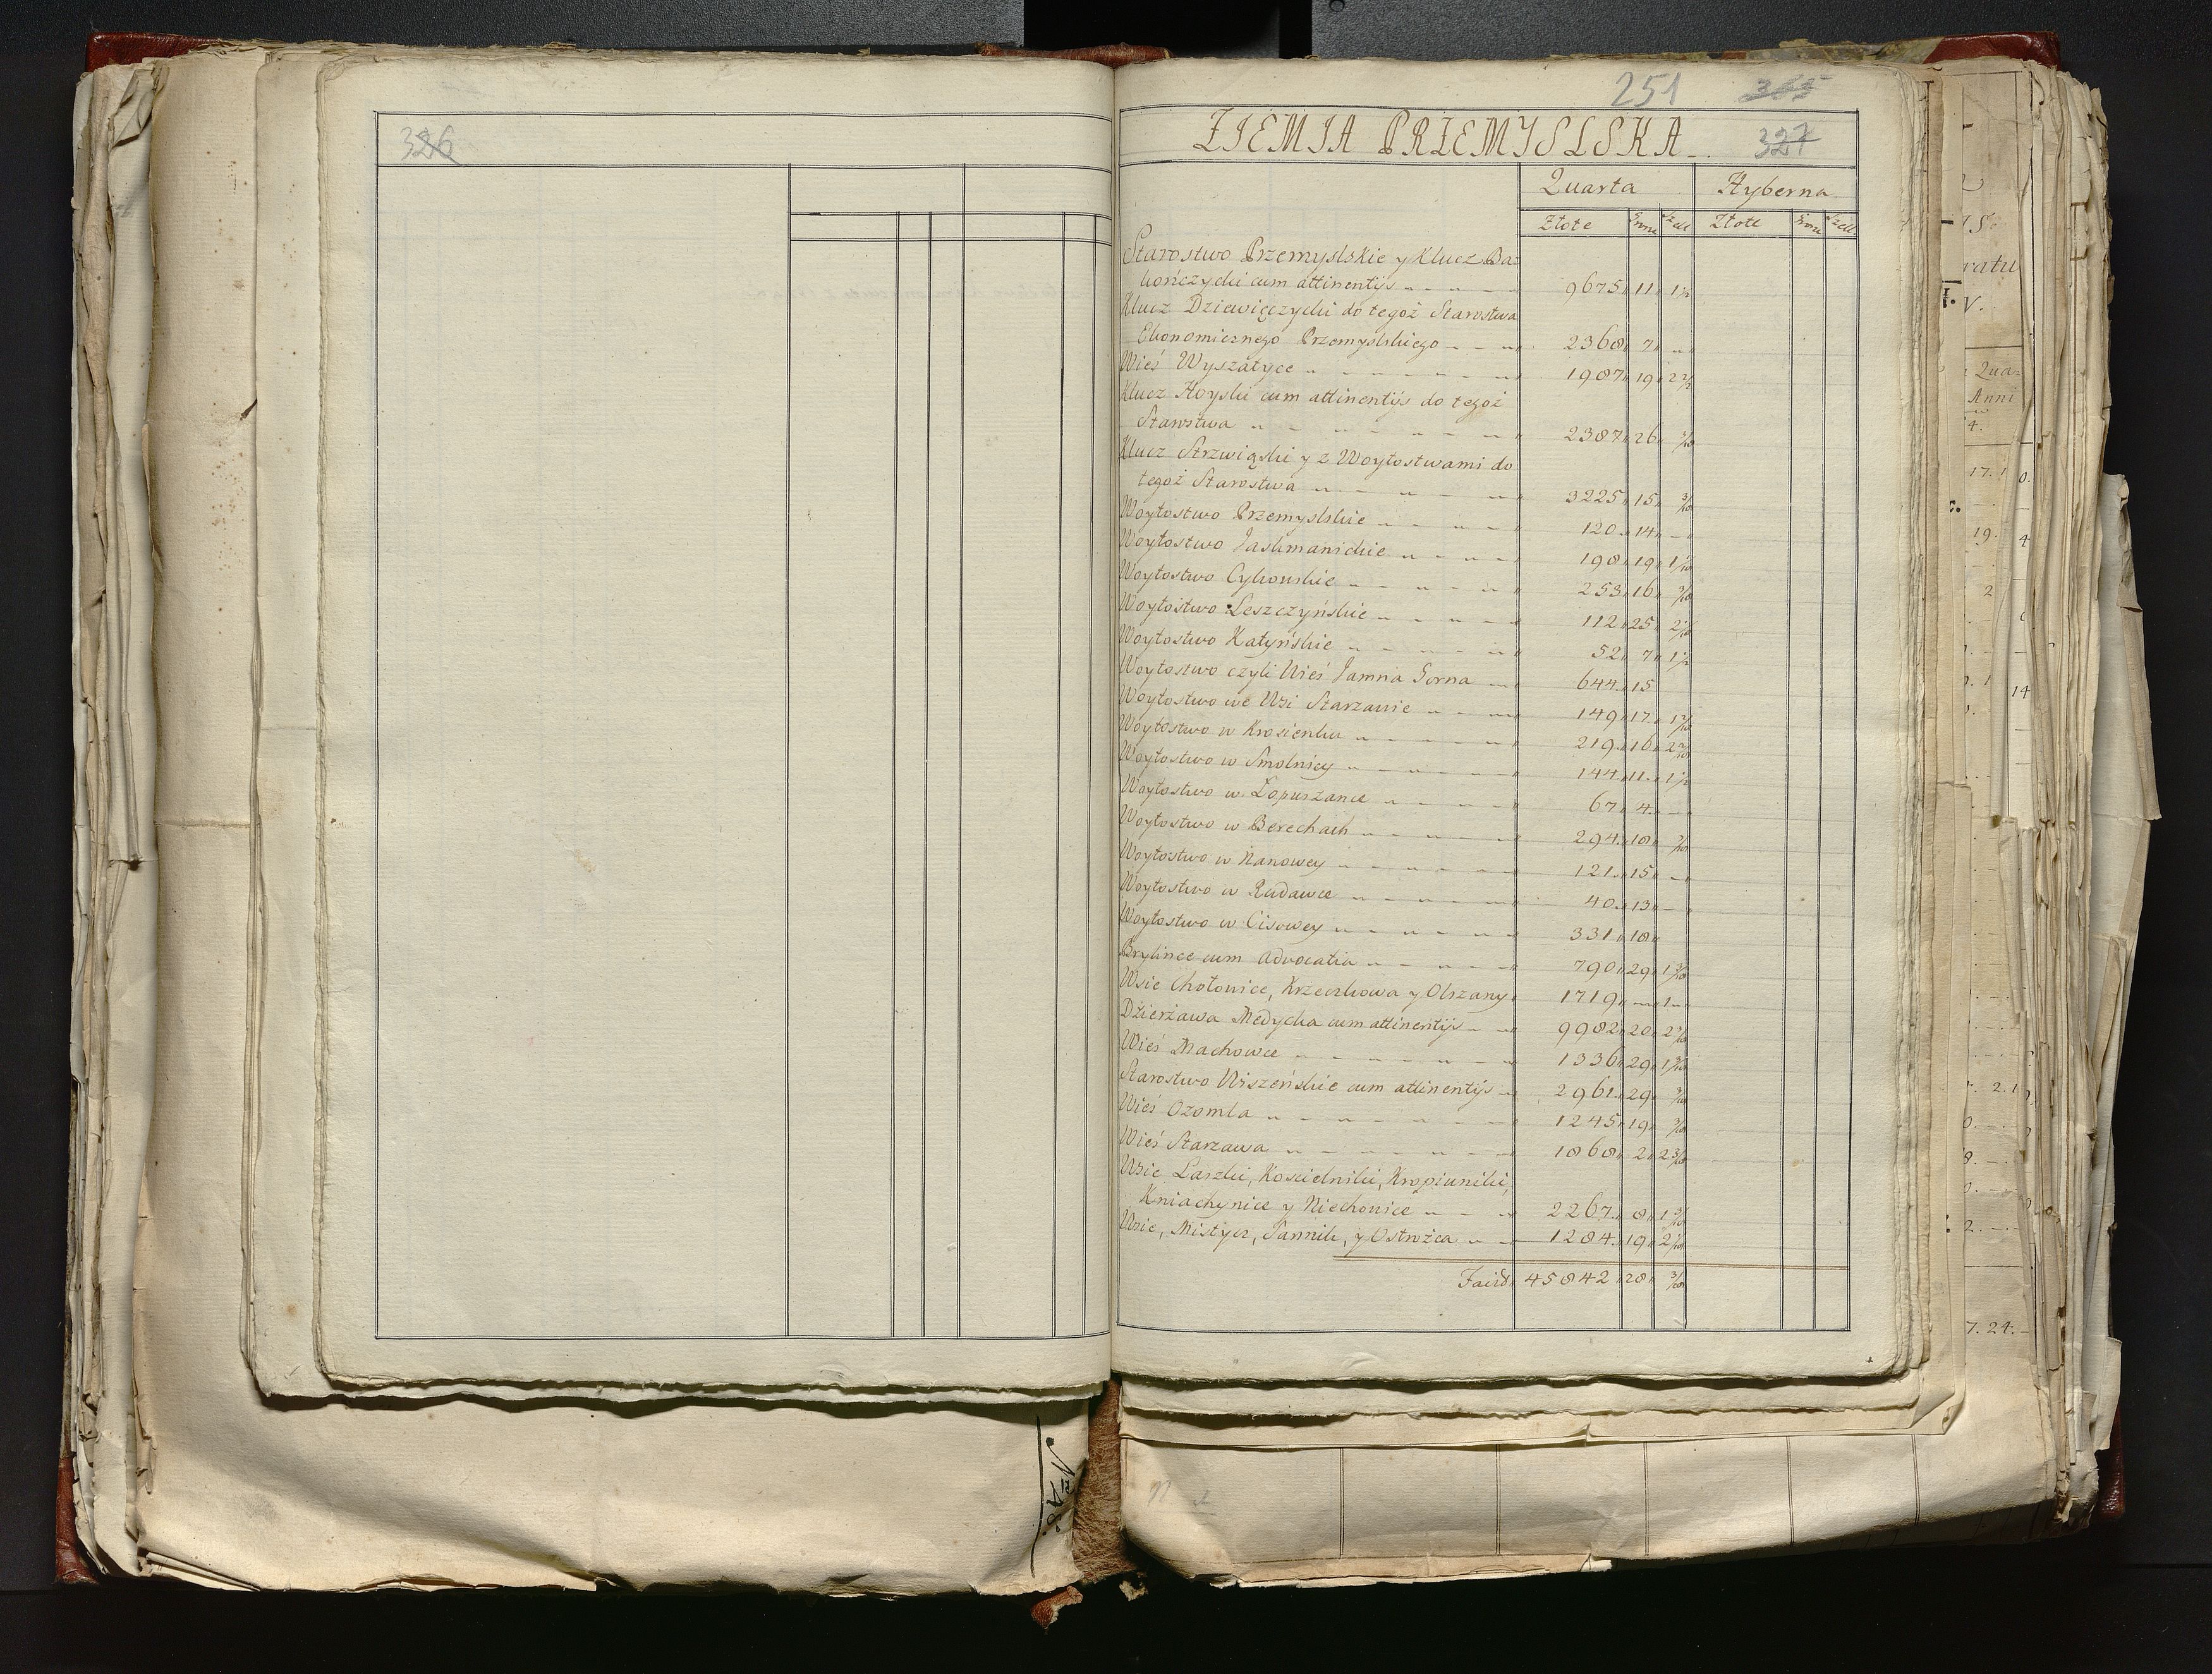 326
251 365
ZIEMIA PRZEMYSLSKA 327
Quarta Hyberna
Złote Złote
Starostwo Przemyslskie y Klucz Ba=
kończycki cum attinentijs 9675 11 1½
Klucz Dziewięczycki do tegoż Starostwa
Ekonomicznego Przemyślskiego 2368 7
Wieś Wyszatyce 1987 19 2½
Klucz Hoyski cum attinentijs do tegoż
Starostwa 2387 26
Klucz Strzwiąski y z Woytostwami do
tegoż Starostwa 3225 15
Woytostwo Przemyslskie 120 14
Woytostwo Jaskmanickie 198 19
Woytostwo Cykowskie 253 16
Woytostwo Leszczyńskie 112 25
Woytostwo Katyńskie 52 7 1½
Woytostwo czyli Wieś Jamna Gorna 644 15
Woytostwo we Wsi Starzawie 149 17
Woytostwo w Krosienku 219 16
Woytostwo w Smolnicy 144 11 1½
Woytostwo w Łopuszance 67 4
Woytostwo w Berechach 294 18
Woytostwo w Nanowey 121 15
Woytostwo w Rudawce 40 13
Woytostwo w Cisowey 331 18
Brylince cum Advocatia 790 29
Wsie Chołowice, Krzeczkowa y Olszany 1719 1
Dzierżawa Medycka cum attinentijs 9982 20
Wieś Machowce 1336 29
Starostwo Wiszeńskie cum attinentijs 2961 29
Wieś Ozomla 1245 19
Wieś Starzawa 1868 2
Wsie Laszki, Kościelniki, Kropiwniki,
Kniachynice y Niechowice 2267 8
Wsie, Mistycz, Tamnik, y Ostrożca 1284 19
Facit 45842 28